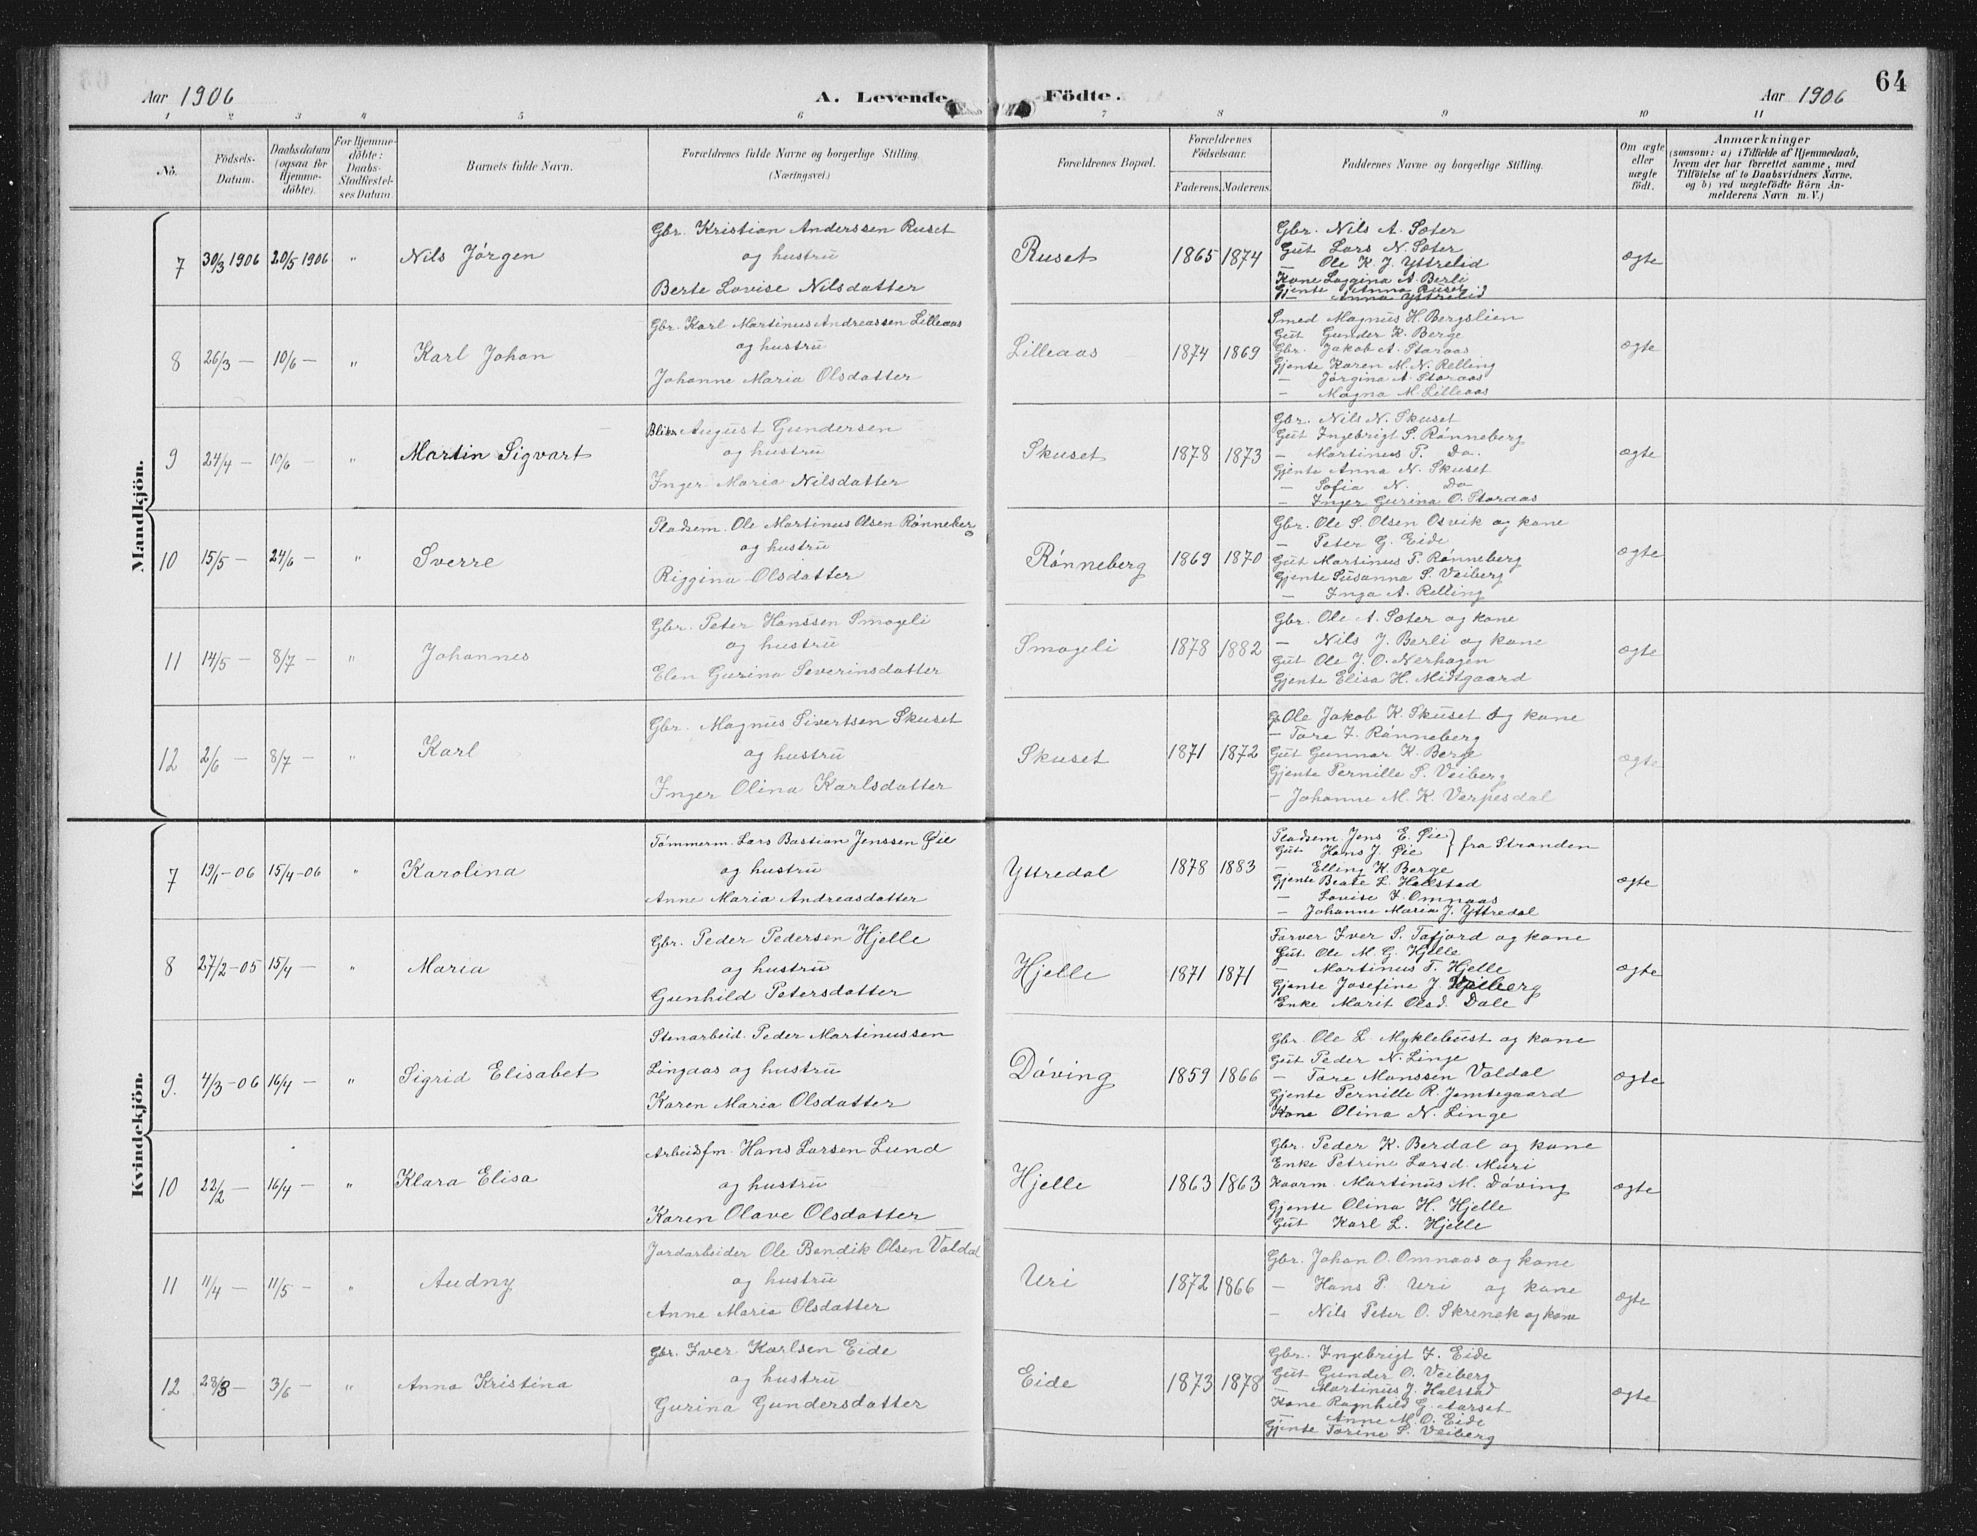 64
Aar 1906
A. Levende Födte.
Aar 1906
1 2 3 4 5 6 7 8 9 10 11
No.
Födsels-Datum.
Daabsdatum (ogsaa for Hjemme-döbte).
For Hjemme-döbte: Daabs-Stadfæstel-ses Datum
Barnets fulde Navn.
Forældrenes fulde Navne og borgerlige Stilling.
(Næringsvei.)
Forældrenes Bopæl.
Forældrenes Födselsaar.
Faderens. Moderens.
Faddernes Navne og borgerlige Stilling.
Om ægte eller uægte födt.
Anmærkninger
(saasom: a) i Tilfælde af Hjemmedaab,
hvem der har forrettet samme, med
Tilföielse af to Daabsvidners Navne.
og b) ved uægtefödte Börn An-
melderens Navn m. V.)
Mandkjön.
7 30/3 1906 20/5 1906 " Nils Jørgen
Gbr. Kristian Anderssen Ruset
og hustru
Berte Lovise Nilsdatter
Ruset 1865 1874
Gbr. Nils A. Sæter
Gut Lars N. Sæter
— Ole K. J. Yttrelid
Kone Laggina A. Berli
Gjente Anna Ruset
— Anna Yttrelid
ægte
8 26/3 — 10/6 — " Karl Johan
Gbr. Karl Martinus Andreassen Lilleaas
og hustru
Johanne Maria Olsdatter
Lilleaas 1874 1869
Smed Magnus H. Bergslien
Gut Gunder K. Berge
Gbr. Jakob A. Storaas
Gjente Karen M. N. Relling
— Jørgina A. Storaas
— Magna M. Lilleaas
ægte
9 24/4 — 10/6 — " Martin Sigvart
Blik. August Gundersen
og hustru
Inger Maria Nilsdatter
Skuset 1878 1873
Gbr. Nils N. Skuset
Gut Ingebrigt S. Rønneberg
— Martinus P. Do.
Gjente Anna N. Skuset
— Sofia N. Do
— Inger Gurina O. Storaas
ægte
10 15/5 — 24/6 — " Sverre
Pladsem. Ole Martinus Olsen Rønneberg
og hustru
Riggina Olsdatter
Rønneberg 1869 1870
Gbr. Ole S. Olsen Osvik og kone
— Peter G. Eide
Gut Martinus P. Rønneberg
Gjente Susanna S. Veiberg
— Inga A. Relling
ægte
11 14/5 — 8/7 — " Johannes
Gbr. Peter Hanssen Smogeli
og hustru
Elen Gurina Severinsdatter
Smogeli 1878 1882
Gbr. Ole A. Sæter og kone
— Nils J. Berli og kone
Gut Ole J. O. Nerhagen
Gjente Elisa H. Midtgaard
ægte
12 2/6 — 8/7 — " Karl
Gbr. Magnus Sivertsen Skuset
og hustru
Inger Olina Karlsdatter
Skuset 1871 1872
Gb Ole Jakob K. Skuset og kone
— Tore I. Rønneberg
Gut Gunnar K. Berge
Gjente Pernille S. Veiberg
— Johanne M. K. Verpesdal
ægte
Kvindekjön.
7 19/1-06 15/4-06 " Karolina
Tømmerm. Lars Bastian Jenssen Øie
og hustru
Anne Maria Andreasdatter
Yttredal 1878 1883
Pladsem. Jens E. Øie
Gut Hans J. Øie } fra Stranden
— Elling K. Berge
Gjente Beate L. Halstad
— Lovise I. Omnaas
— Johanne Maria J. Yttredal
ægte
8 27/2-05 15/4 — " Maria
Gbr. Peder Pedersen Hjelle
og hustru
Gunhild Petersdatter
Hjelle 1871 1871
Farver Iver S. Tafjord og kone
Gut. Ole M. G. Hjelle
— Martinus T. Hjelle
Gjente Josefine J.
Enke Marit Olsd. Dale
ægte
9. 4/3-06 16/4 — " Sigrid Elisabet
Stenarbeid. Peder Martinussen
Lingaas og hustru
Karen Maria Olsdatter
Døving 1859 1866
Gbr. Ole L. Myklebust og kone
Gut Peder N. Linge
— Tore Monssen Valdal
Gjente Pernille R. Jemtegaard
Kone Olina N. Linge
ægte
10 22/2 — 16/4 — " Klara Elisa
Arbeidsfm. Hans Larsen Lund
og hustru
Karen Olave Olsdatter
Hjelle 1863 1863
Gbr. Peder K. Berdal og kone
Enke Petrine Larsd. Muri
Kaarm. Martinus M. Døving
Gjente Olina H. Hjelle
Gut Karl L. Hjelle
ægte
11 11/4 — 11/5 — " Audny
Jordarbeider Ole Bendik Olsen Valdal
og hustru
Anne Maria Olsdatter
Uri 1872 1866
Gbr. Johan O. Omnaas og kone
— Hans P. Uri og kone
— Nils Peter O. Skrenak og kone
ægte
12 28/3 — 3/6 — " Anna Kristina
Gbr. Iver Karlsen Eide
og hustru
Gurina Gundersdatter
Eide 1873 1878
Gbr. Ingebrigt I. Eide
Gut Gunder O. Veiberg
— Martinus J. Halstad
Kone Ragnhild G. Aarset
— Anne M. O. Eide
Gjente Torine S. Veiberg
ægte